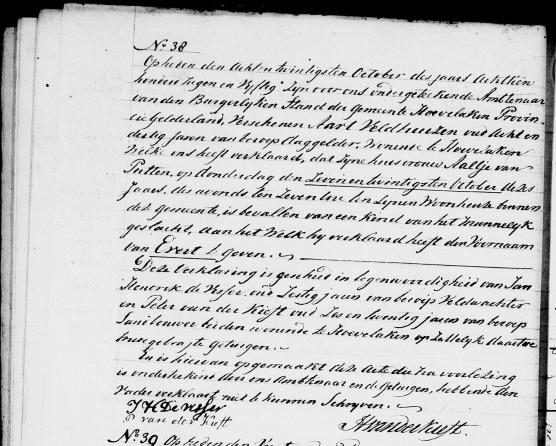 No 38
Op heden den Acht en twintigsten October des jaars Achttien
honderd Negen en Vyftig Zyn voor ons ondergetekende Ambtenaar
van den Burgerlyken Stand der Gemeente Hoevelaken Provin
cie Gelderland, Verschenen Aart Veldhuizen oud Acht en
dertig Jaren van beroep daggelder, Wonende te Hoevelaken
Welke ons heeft verklaard, dat Zyne huisvrouw Aaltje van
Putten, op donderdag den Zeven en twintigsten October dezes
Jaars, des avonds ten Zeven Ure ten Zynen Woonhuize binnen
deze gemeente, is bevallen van een Kind van het Mannelyk
geslacht, aan het Welk hy verklaard heeft den Voornaam
van Evert te geven.
Deze verklaring is geschied in tegenwoordigheid van Jan
Hendrik de Visser, oud Zestig jaren van beroep Veldwachter
en Peter van der Kieft oud Zes en twintig jaren van beroep
Landbouwer beiden wonende te Hoevelaken opzettelyk daartoe
getuigen.
En is hiervan opgemaakt deze Acte die na voorlezing
is ondertekend door ons Ambtenaar en de getuigen, hebbende den
Vader verklaard niet te kunnen Schryven.
J H De Visser
P van der Kieft
HvanderKieft.
No 39 Op heden den